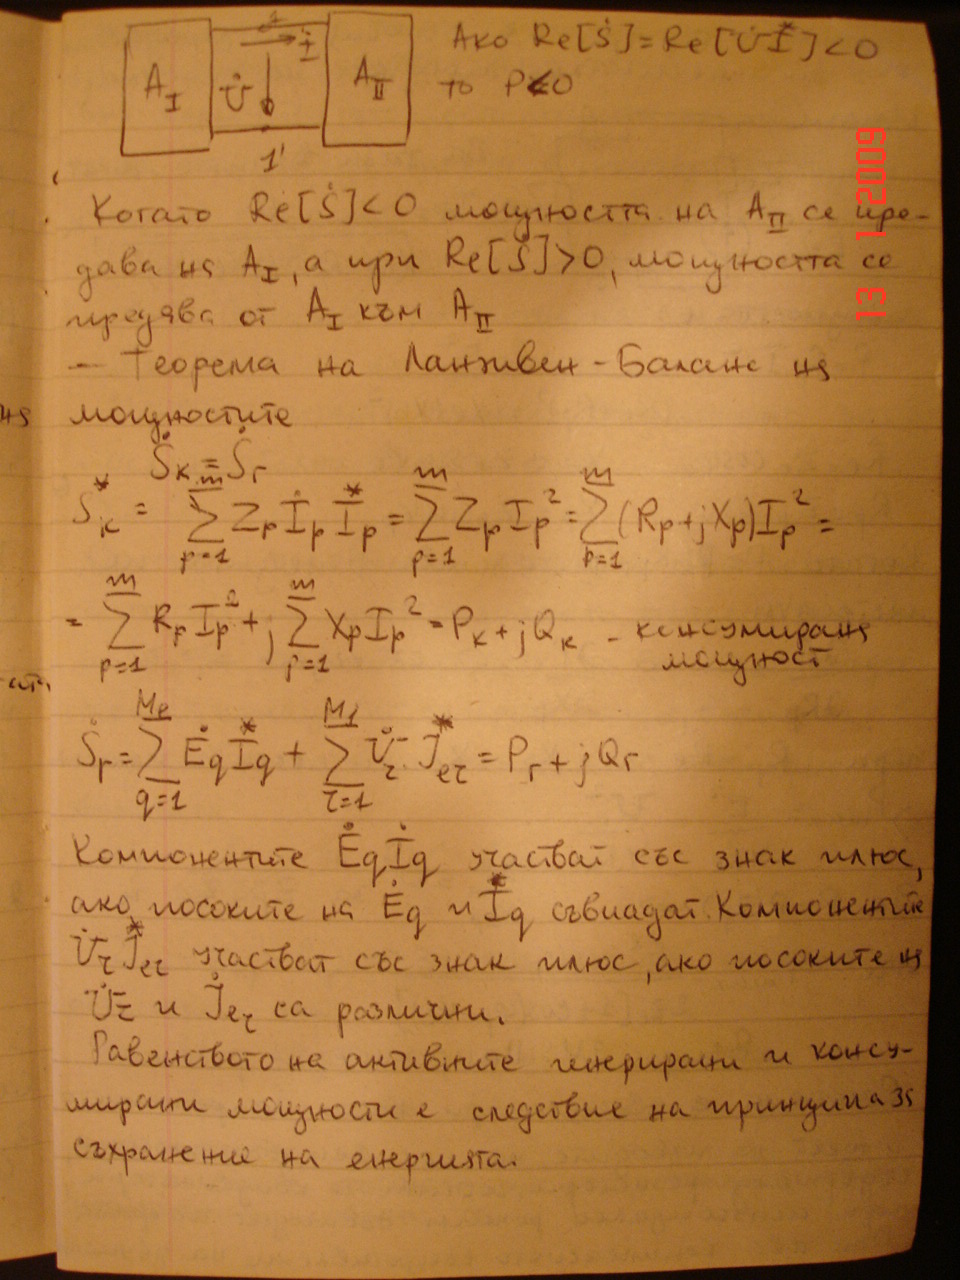 1
A_I U̇ İ A_II
1'
Ако Re[Ṡ]=Re[U̇I*]<0
то P<0
13 1 2009
Когато Re[Ṡ]<0 мощността на A_II се пре-
дава на A_I, а при Re[Ṡ]>0, мощността се
предава от A_I към A_II
— Теорема на Ланживен - Баланс на
на
мощностите
Ṡк = Ṡг
S*к = ∑(p=1..m) Zp İp I*p = ∑(p=1..m) Zp Ip² = ∑(p=1..m) (Rp+jXp)Ip² =
= ∑(p=1..m) Rp Ip² + j ∑(p=1..m) Xp Ip² = Pк + jQк - консумирана
мощност
Ṡг = ∑(q=1..Me) Ėq I*q + ∑(r=1..MJ) U̇r J*er = Pг + jQг
Компонентите Ėqİq участват със знак плюс,
ако посоките на Ėq и I*q съвпадат. Компонентите
U̇r J*er участват със знак плюс, ако посоките на
U̇r и J̇er са различни.
Равенството на активните генерирани и консу-
мирани мощности е следствие на принципа за
съхранение на енергията.